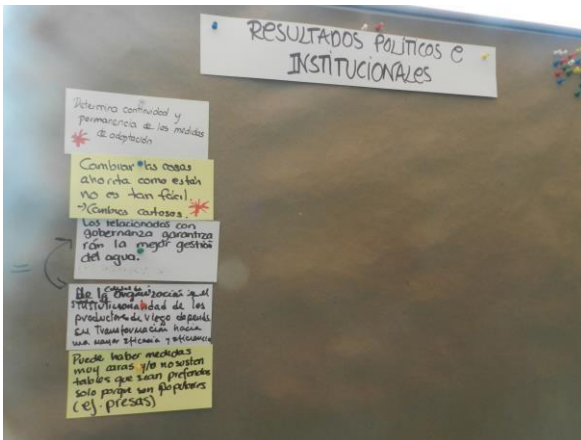 RESULTADOS POLÍTICOS E
INSTITUCIONALES
Determina continuidad y
permanencia de las medidas
de adaptación
Cambiar las cosas
ahorita como están
no es tan fácil.
→ (Cambios costosos.
Los relacionados con
gobernanza garantiza
rán la mejor gestión
del agua.
De la organización e in
stitucionalidad de los
productores de riego depende
su transformación hacia
una mayor eficacia y eficiencia
Puede haber medidas
muy caras y/o no susten
tables que sean preferidas
solo porque son populares
(ej. presas)